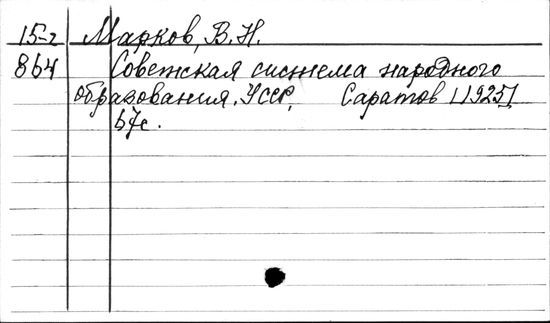 15-2 Марков, В. Н.
864 Советская система народного
образования. УССР, Саратов [1925]
67с.